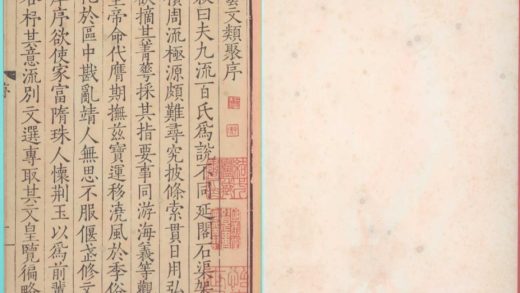 藝文類聚序
叙曰夫九流百氏爲說不同延閣石渠架
積周流極源頗難尋究披條索貫日用弘
欲摘其菁華採其指要事同游海義等觀
皇帝命代膺期撫兹寳運移澆風於季俗
化於區中戡亂靖人無思不服偃武修文
庠序欲使家富隋珠人懷荆玉以爲前輩
各杼其意流别文選專取其文皇覽徧略